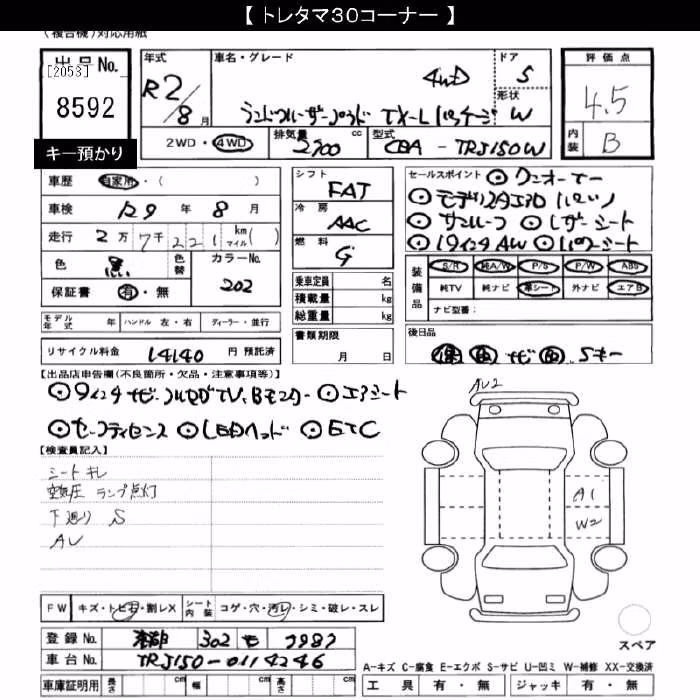 【 トレタマ30コーナー 】
(複合機)対応用紙
出品No.
[2053]
8592
キー預かり
年式
R2/8月
車名・グレード
4WD
ランドクルーザープラド TX-Lパッケージ
ドア
5
形状
W
評価点
4.5
内装
B
2WD・4WD
排気量
2700 cc
型式
CBA - TRJ150W
車歴 自家用・( )
車検 R9 年 8 月
走行 2万7千221 km マイル( )
色 黒 色替 カラーNo. 202
保証書 有・無
モデル年式 年 ハンドル 左・右 ディーラー・並行
リサイクル料金 14140 円 預託済
シフト
FAT
冷房
AAC
燃料
G
乗車定員 名
積載量 kg
総重量 kg
書類期限
月 日
セールスポイント ⊙ワンオーナー
⊙サンルーフ ⊙レザーシート
⊙19インチAW ⊙パワーシート
装備品 S/R 純A/W P/S P/W ABS
純TV 純ナビ 革シート 外ナビ エアB
ナビ型番:
後日品
ナビ Sキー
【出品店申告欄(不良箇所・欠品・注意事項等)】
⊙9インチナビ・フルセグTV、Bモニター ⊙エアシート
⊙セーフティセンス ⊙LEDヘッド ⊙ETC
【検査員記入】
シートキレ
空気圧 ランプ点灯
下廻り S
AU
AU2
A1
W2
FW キズ・トビ石・割レX シート内装 コゲ・穴・汚レ・シミ・破レ・スレ
登録No. 302
車台No. TRJ150-0114246
車庫証明用 長さ cm 幅 cm 高さ cm
スペア
A-キズ C-腐食 E-エクボ S-サビ U-凹ミ W-補修 XX-交換済
工具 有・無 ジャッキ 有・無